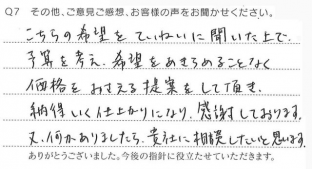 Q7 その他、ご意見ご感想、お客様の声をお聞かせください。
こちらの希望をていねいに聞いた上で、
予算を考え、希望をあきらめることなく
価格をおさえる提案をして頂き、
納得いく仕上がりになり、感謝しております。
又、何かありましたら、貴社に相談したいと思います。
ありがとうございました。今後の指針に役立たせていただきます。